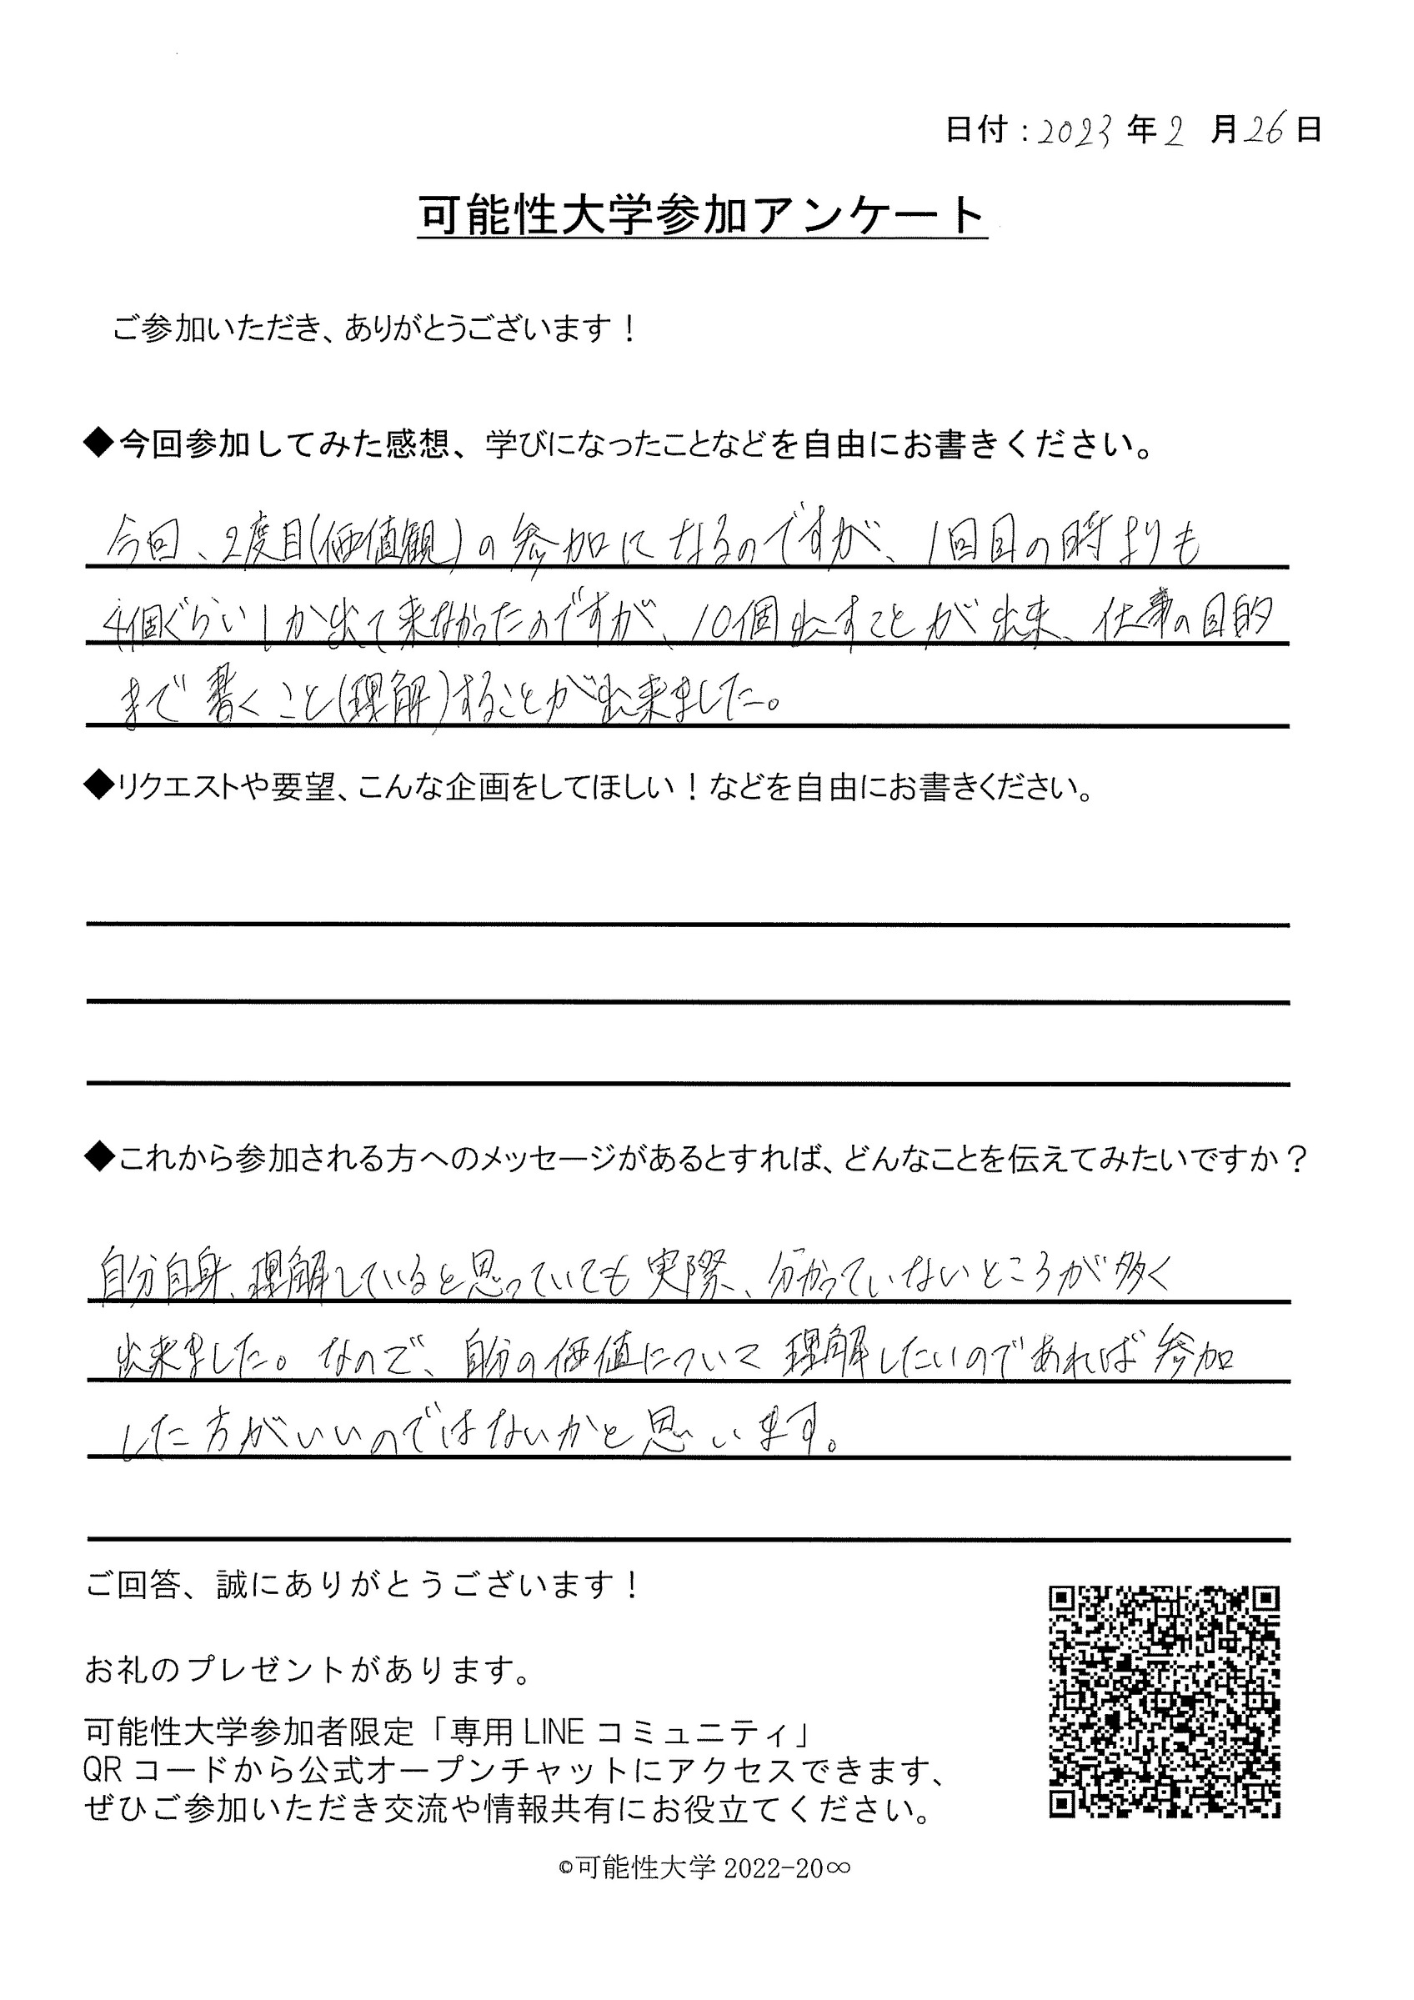 日付：2023年2月26日
可能性大学参加アンケート
ご参加いただき、ありがとうございます！
◆今回参加してみた感想、学びになったことなどを自由にお書きください。
今回、2度目(価値観)の参加になるのですが、1回目の時よりも
4個ぐらいしか出て来なかったのですが、10個出すことが出来、仕事の目的
まで書くこと(理解)することが出来ました。
◆リクエストや要望、こんな企画をしてほしい！などを自由にお書きください。
◆これから参加される方へのメッセージがあるとすれば、どんなことを伝えてみたいですか？
自分自身、理解していると思っていても実際、分かっていないところが多く
出来ました。なので、自分の価値について理解したいのであれば参加
した方がいいのではないかと思います。
ご回答、誠にありがとうございます！
お礼のプレゼントがあります。
可能性大学参加者限定「専用LINEコミュニティ」
QRコードから公式オープンチャットにアクセスできます、
ぜひご参加いただき交流や情報共有にお役立てください。
©可能性大学 2022-20∞